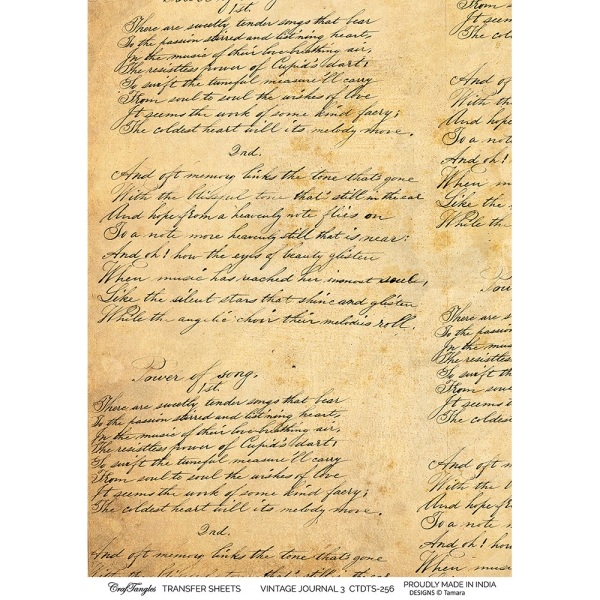 Power of song.
1st.
There are sweetly tender songs that bear
To the passion stirred and list'ning heart,
In the music of their love-breathing air,
The resistless power of Cupid's dart;
So swift the tuneful measure'll carry
From soul to soul the wishes of love
It seems the work of some kind faery;
The coldest heart will its melody move.
2nd.
And oft memory links the tone that's gone
With the blissful tone that's still in the ear
And hope from a heavenly note flies on
To a note more heavenly still that is near;
And oh! how the eyes of beauty glisten
When music has reached her inmost soul,
Like the silent stars that shine and glisten
While the angelic choir their melodies roll.
Power of song.
1st.
There are sweetly tender songs that bear
To the passion stirred and list'ning heart,
In the music of their love-breathing air,
The resistless power of Cupid's dart;
So swift the tuneful measure'll carry
From soul to soul the wishes of love
It seems the work of some kind faery;
The coldest heart will its melody move.
2nd.
And oft memory links the tone that's gone
With the blissful tone that's still in the
From so
It seem
The col
And of
With th
And hope
To a not
And oh!
When m
Like the
While the
Pow
There are
To the passion
In the mus
The resistless
So swift th
From soul
It seems t
The coldest
And oft m
With the
And hope f
To a note m
And oh! how
When music
CrafTangles TRANSFER SHEETS VINTAGE JOURNAL 3 CTDTS-256 PROUDLY MADE IN INDIA
DESIGNS © Tamara